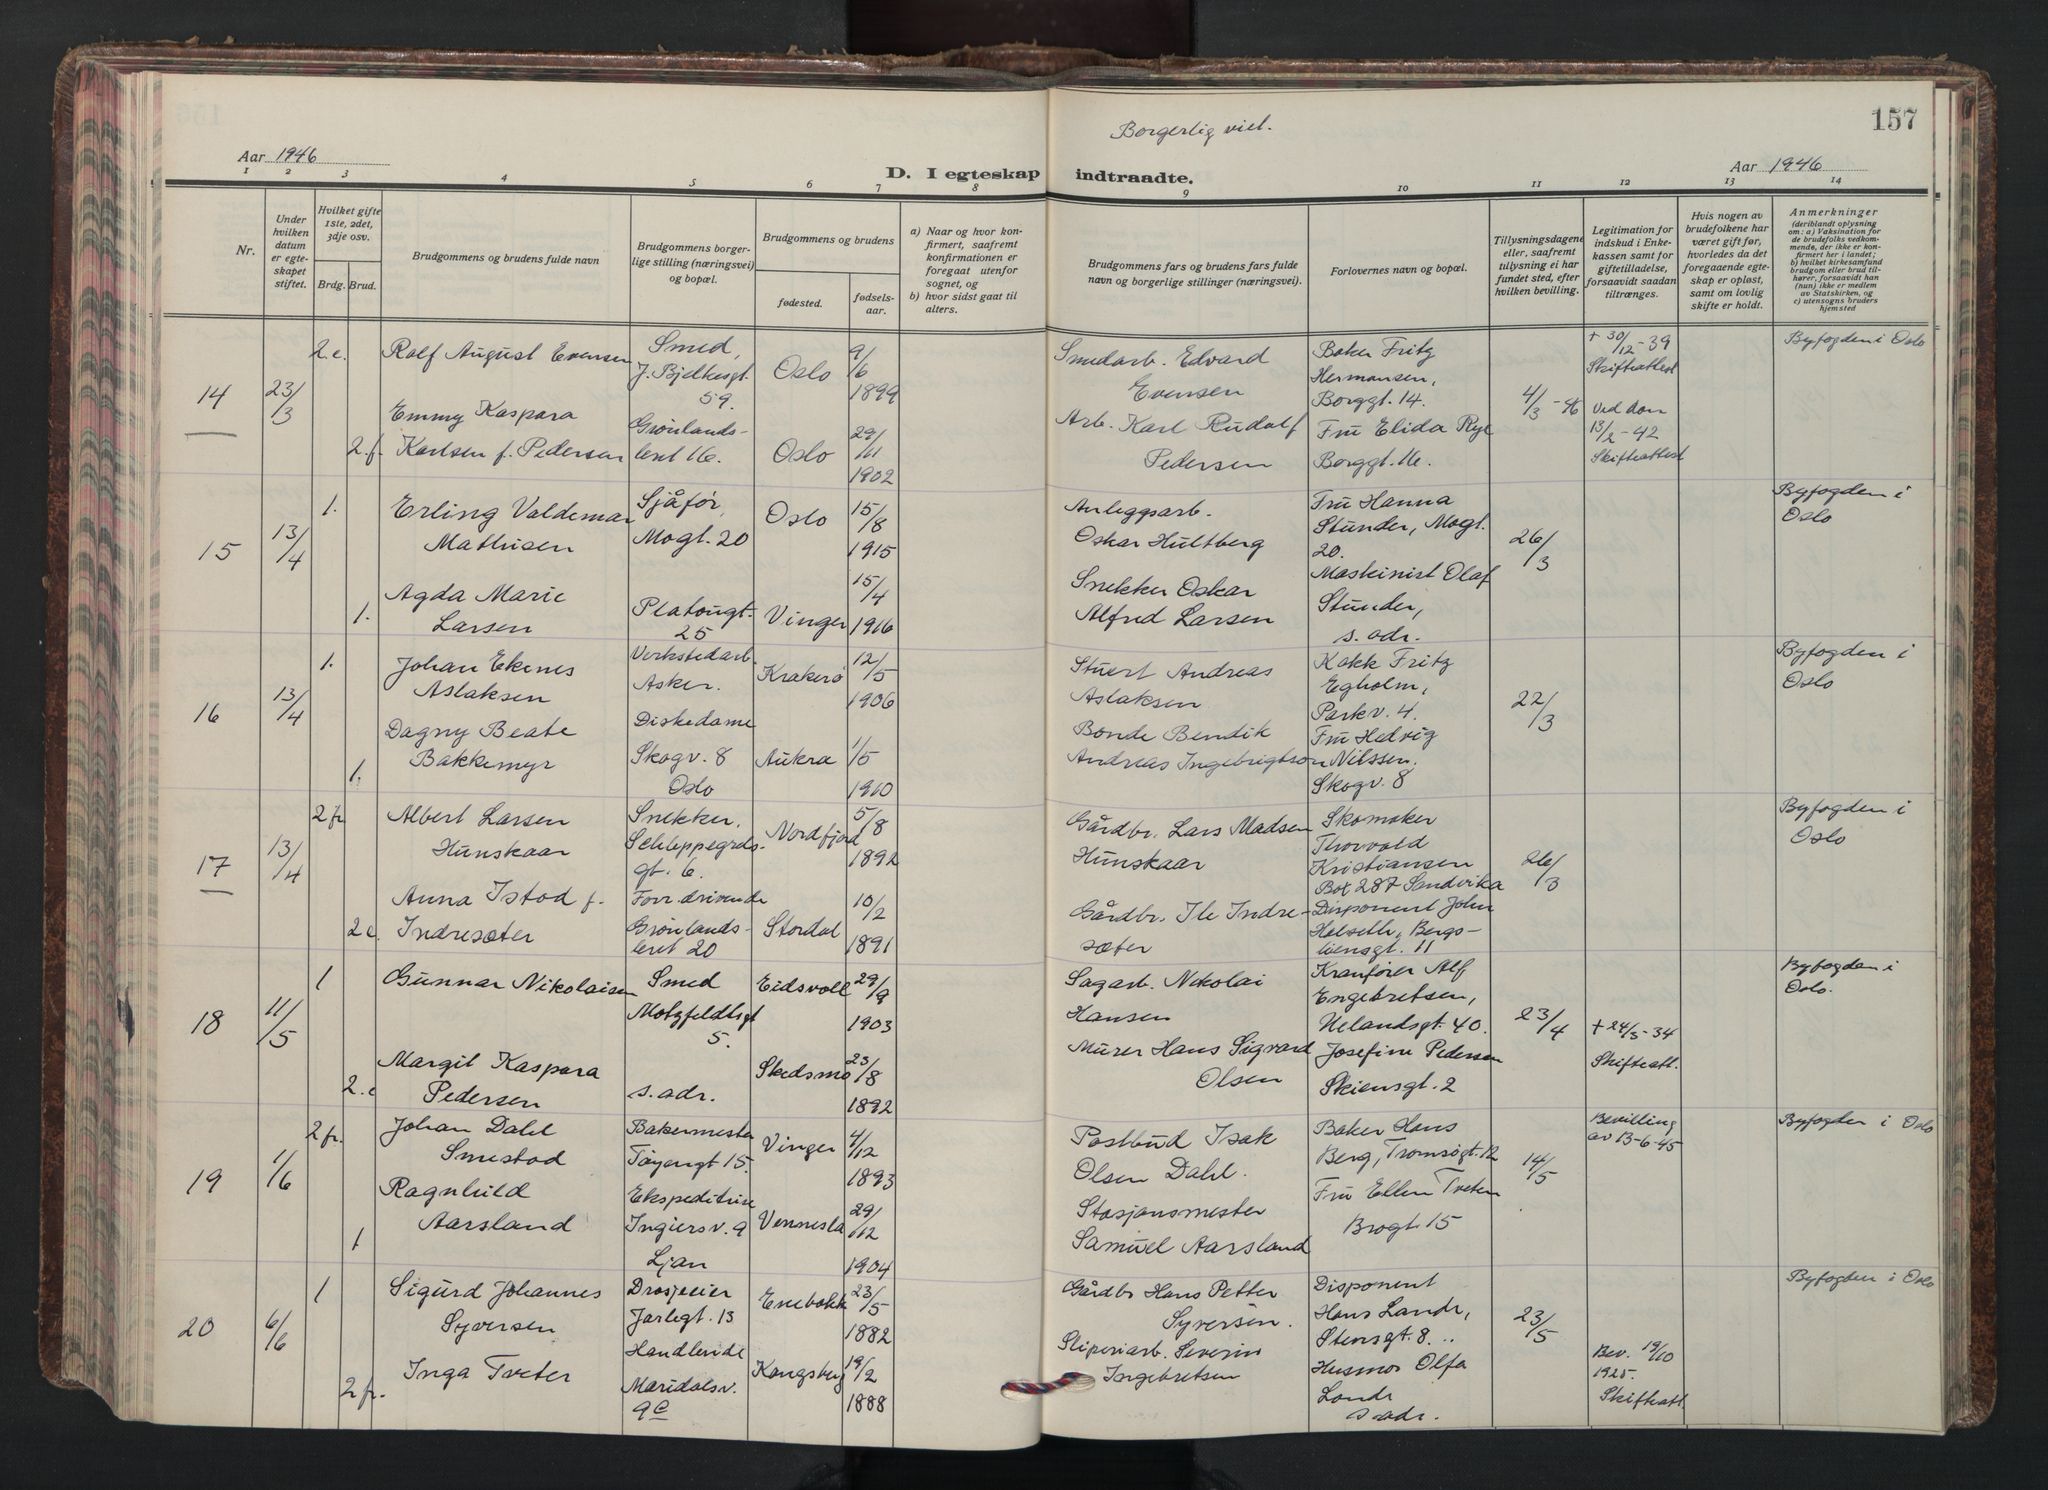 157
Borgerlig viel.
Aar 1946
D. I egteskap indtraadte.
Aar 1946
1 2 3 4 5 6 7 8 9 10 11 12 13 14
Nr.
Under
hvilken
datum
er egte-
skapet
stiftet.
Hvilket gifte
1ste, 2det,
3dje osv.
Brdg. Brud.
Brudgommens og brudens fulde navn
Brudgommens borger-
lige stilling (næringsvei)
og bopæl.
Brudgommens og brudens
fødested.
fødsels-
aar.
a) Naar og hvor kon-
firmert, saafremt
konfirmationen er
foregaat utenfor
sognet, og
b) hvor sidst gaat til
alters.
Brudgommens fars og brudens fars fulde
navn og borgerlige stillinger (næringsvei).
Forlovernes navn og bopæl.
Tillysningsdagene
eller, saafremt
tillysning ei har
fundet sted, efter
hvilken bevilling.
Legitimation for
indskud i Enke-
kassen samt for
giftetilladelse,
forsaavidt saadan
tiltrænges.
Hvis nogen av
brudefolkene har
været gift før,
hvorledes da det
foregaaende egte-
skap er opløst,
samt om lovlig
skifte er holdt.
Anmerkninger
(deriblandt oplysning
om: a) Vaksination for
de brudefolks vedkom-
mende, der ikke er kon-
firmert her i landet;
b) hvilket kirkesamfund
brudgom eller brud til-
hører, forsaavidt han
(hun) ikke er medlem
av Statskirken, og
c) utensogns bruders
hjemsted
14
23/3
2.e.
Rolf August Evensen
Smed,
J. Bjelkesgt.
59.
Oslo
9/6
1899
Smedarb. Edvard
Evensen
Baker Fritz
Hermansen,
Borggt. 14.
4/3 - 46
+ 30/12 - 39
Skifteattest
Byfogden i Oslo
2.f.
Emmy Kaspara
Karlsen f. Pedersen
Grønlands-
leret 16.
Oslo
29/11
1902
Arb. Karl Rudolf
Pedersen
Fru Elida Rye
Borggt. 16.
Ved dom
13/2 - 42
Skifteattest
15
13/4
1.
Erling Valdemar
Mathisen
Sjåfør,
Mogt. 20
Oslo
15/8
1915
Anleggsarb.
Oskar Hultberg
Fru Hanna
Stunder, Mogt.
20.
26/3
Byfogden i
Oslo
1.
Agda Marie
Larsen
Platougt.
25
Vinger
15/4
1916
Snekker Oskar
Alfred Larsen
Maskinist Olaf
Stunder,
s. adr.
16
13/4
1.
Johan Ekenes
Aslaksen
Verkstedarb.
Asker.
Krakerø
12/5
1906
Stuert Andreas
Aslaksen
Kokk Fritz
Egholm,
Parkv. 4.
22/3
Byfogden i
Oslo
1.
Dagny Beate
Bakkemyr
Diskedame
Skogv. 8
Oslo
Aukra
1/5
1910
Bonde Bendik
Andreas Ingebrigtson
Fru Hedvig
Nilssen.
Skogv. 8
17
13/4
2 fr.
Albert Larsen
Hunskaar
Snekker,
Schleppegrds-
gt. 6.
Nordfjord
5/8
1892
Gårdbr. Lars Madsen
Hunskaar
Skomaker
Thorvald
Kristiansen
Box 287 Sandvika
26/3
Byfogden i
Oslo
2 e.
Anna Istad f.
Indresæter
Forr.drivende
Grønlands-
leret 20
Stordal
10/2
1891
Gårdbr. Ile Indre-
sæter
Disponent John
Holseth, Bergs-
liensgt. 11
18
11/5
1
Gunnar Nikolaisen
Smed
Motzfeldtsgt
5.
Eidsvoll
29/9
1903
Sagarb. Nikolai
Hansen
Kranfører Alf
Engebretsen,
Uelandsgt. 40.
23/4
+ 24/3 - 34
Skifteatt.
Byfogden i
Oslo.
2.e
Margit Kaspara
Pedersen
s. adr.
Skedsmo
23/8
1892
Murer Hans Sigvard
Olsen
Josefine Pedersen
Skiensgt. 2
19
1/6
2 fr.
Johan Dahl
Smestad
Bakermester
Tøyengt 15.
Vinger
4/12
1893
Postbud Isak
Olsen Dahl.
Baker Hans
Berg, Tromsøgt. 12
14/5
Bevilling
av 13-6-45
Byfogden i Oslo
1
Ragnhild
Aarsland
Ekspeditrise
Ingiersv. 9
Ljan
Vennesla
29/12
1904
Stasjonsmester
Samuel Aarsland
Fru Ellen Tveten
Brogt. 15
20
6/6
1
Sigurd Johannes
Syversen
Drosjeeier
Jarlegt. 13
Enebakk
23/5
1882
Gårdbr Hans Petter
Syversen.
Disponent
Hans Landr,
Stensgt. 8.
23/5
Byfogden i Oslo
2 fr.
Inga Tveter
Handlende
Maridalsv.
9c
Kongsberg
19/2
1888
Sliperiarb. Severin
Ingebretsen
Husmor Olfa
Landr
s. adr.
Bev. 19/10
1925.
Skifteatt.